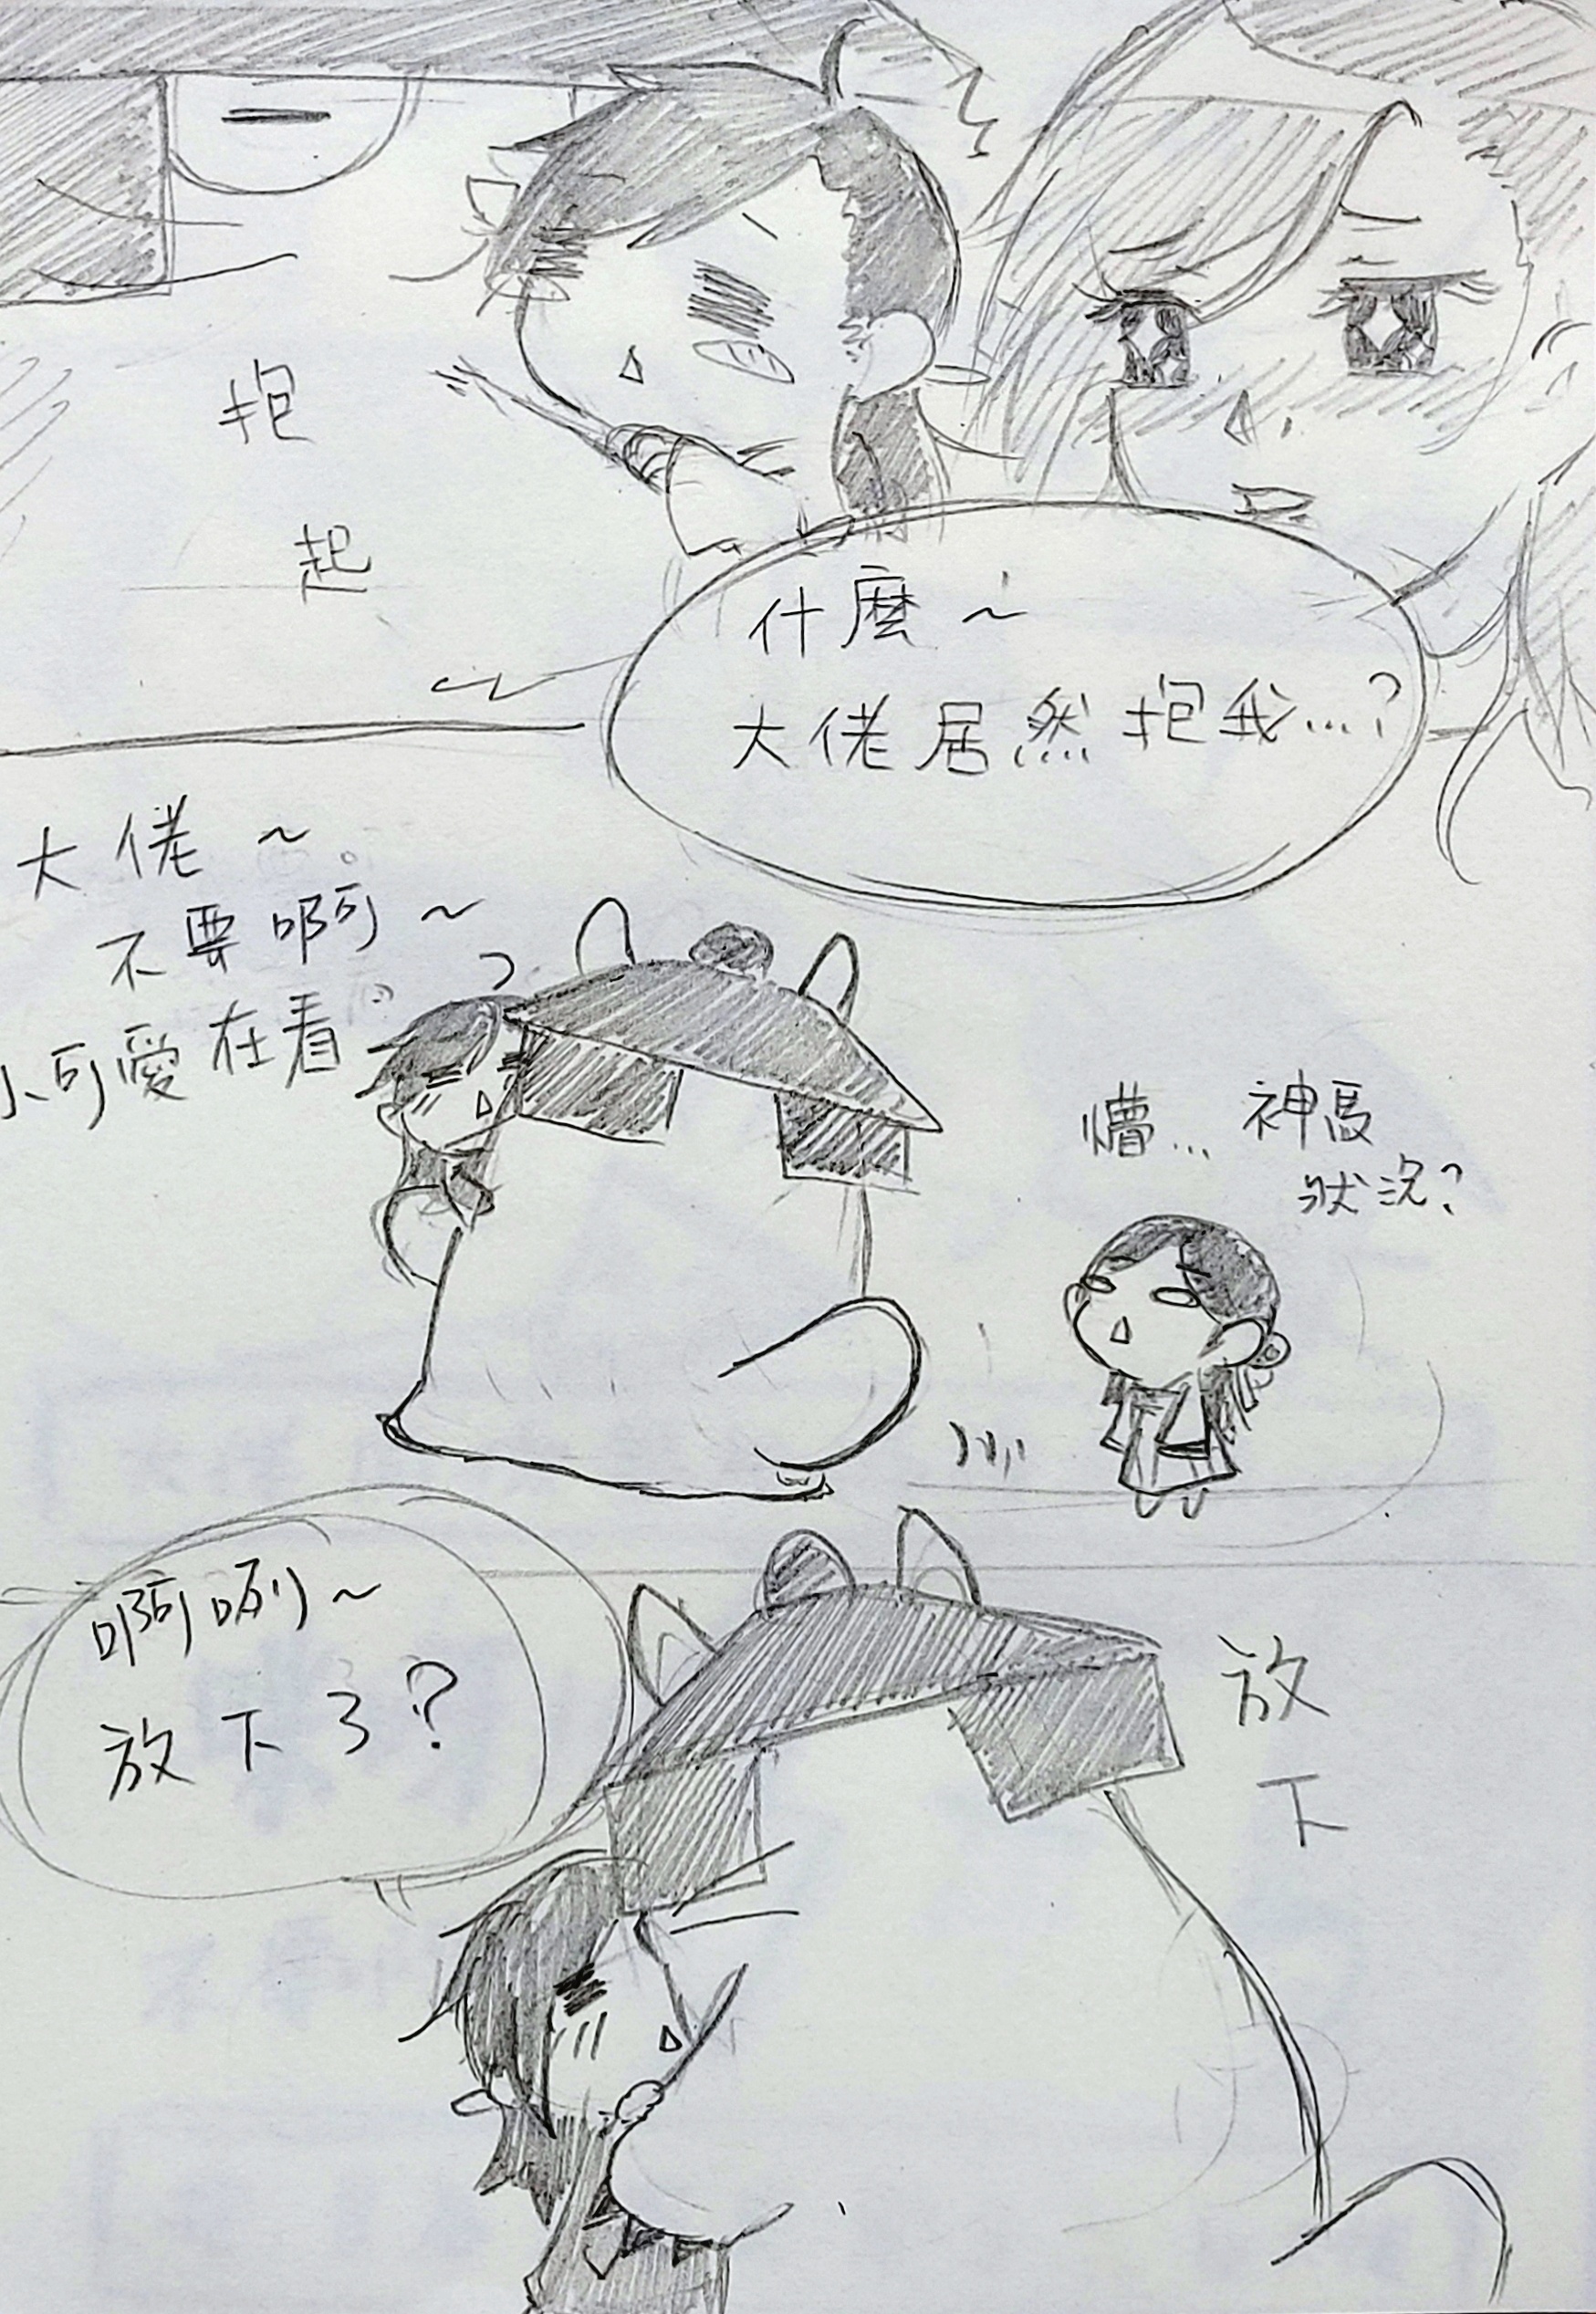 抱
起
什麼~
大佬居然抱我...?
大佬~
不要啊~
小可愛在看
懵... 神馬
狀況?
啊咧~
放下了?
放
下